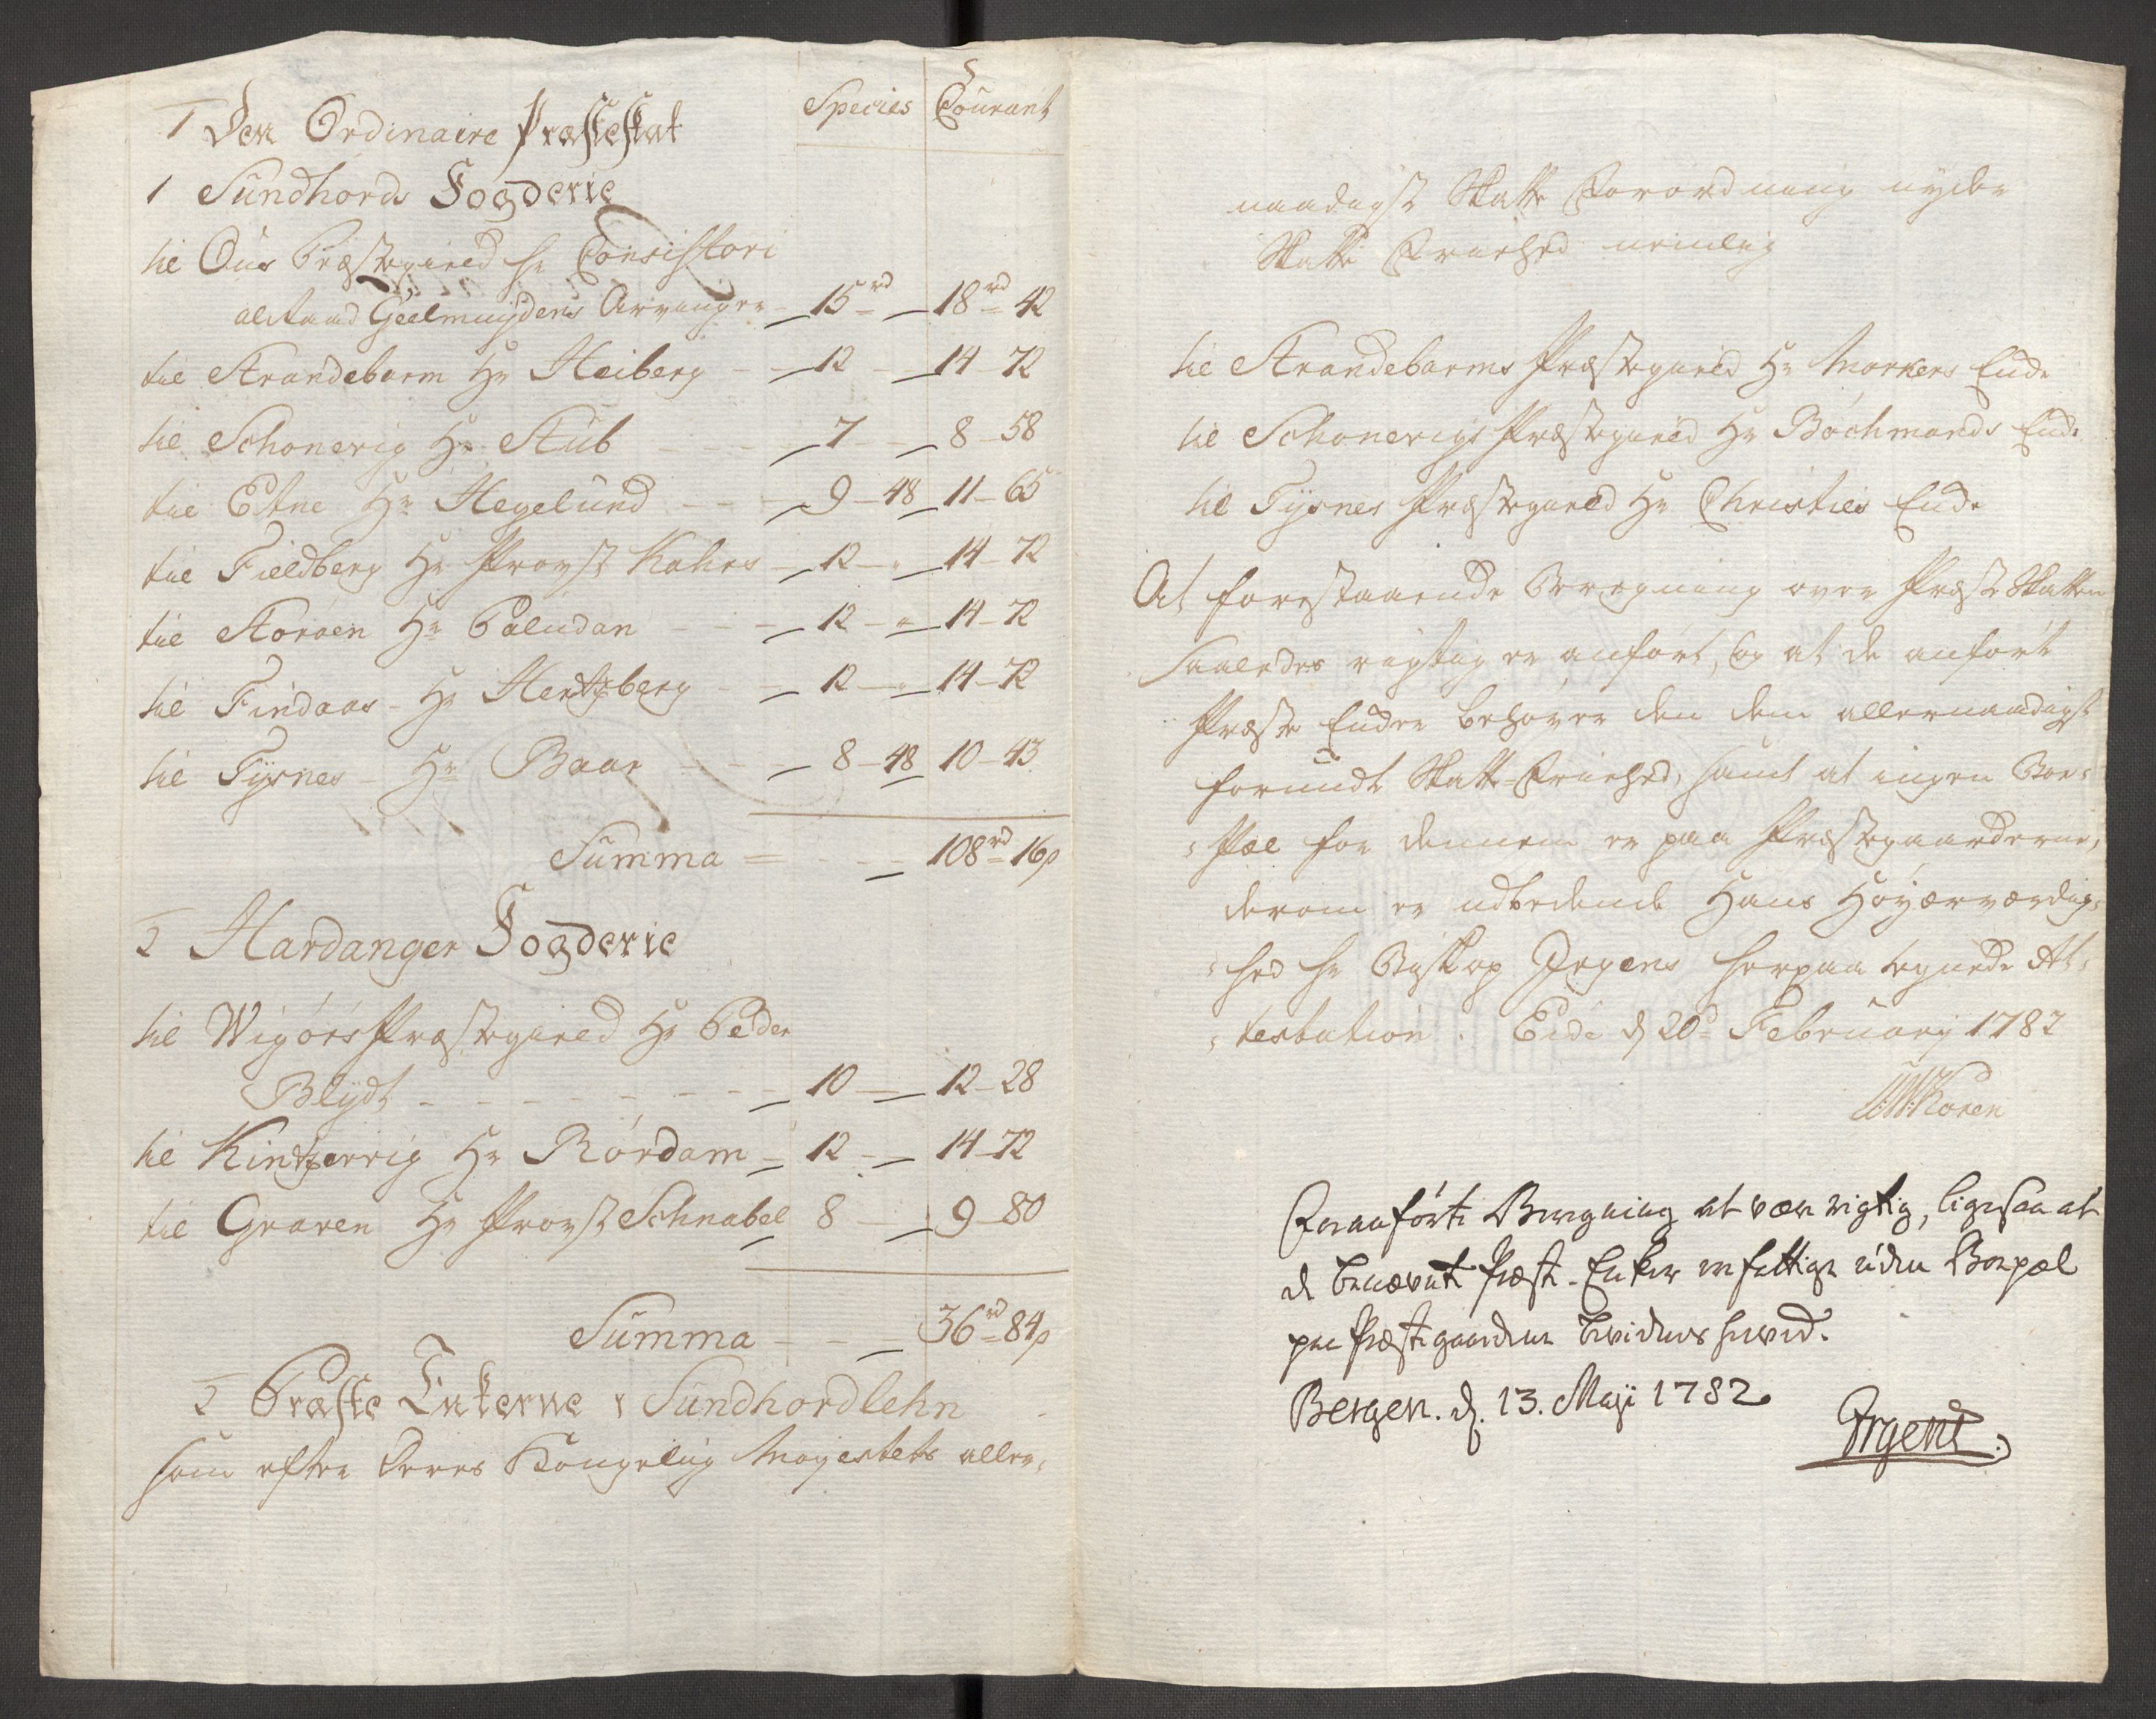 Species Courant
1 Den Ordinaire Præsteskat
1 Sundhords Fogderie
til Ous Præstegield Hr Consistori
alraad Geelmuydens Arvinger 15rd 18rd 42
til Strandebarm Hr Heiberg 12 14-72
til Schonevig Hr Stub 7 8-58
til Etne Hr Hegelund 9-48 11-65
til Fieldberg Hr Provst Kahrs 12 14-72
til Storöen Hr Paludan 12 14-72
til Findaas Hr Hertzberg 12 14-72
til Tysnes Hr Baar 8-48 10-43
Summa 108rd 16s
2 Hardanger Fogderie
til Wigörs Præstegield Hr Peder
Blydt 10 12-28
til Kintzervig Hr Rördam 12 14-72
til Graven Hr Provst Schnabel 8 9-80
Summa 36rd 84s
2 Præste Enkerne i Sundhordlehn
som efter Deres Kongelig Majestets aller-
naadigst Skatte Forordning nyder
Skatte Friehed nemlig
til Strandebarms Præstegield Hr Enke
til Schonevigs Præstegield Hr Böchmands Enke
til Tysnes Præstegield Hr Christies Enke
At forestaaende Beregning over Præste Skatten
saaledes rigtig er anfört, og at de anförte
Præste Enker behöver den dem allernaadigst
forundte Skatte-Friehed, samt at ingen Boe-
-pæl for dennem er paa Præstegaarderne,
derom er udbedende Hans Höyærværdig-
-hed Hr Biskop Irgens herpaa tegnede At-
-testation. Eide d 20d February 1782
Koren
Foranförte Beregning at være rigtig, ligesaa at
de benævnte Præste-Enker ere fattige uden Boepæl
paa Præstegaardene bevidnes herved.
Bergen. d. 13. Maji 1782.
Irgens.